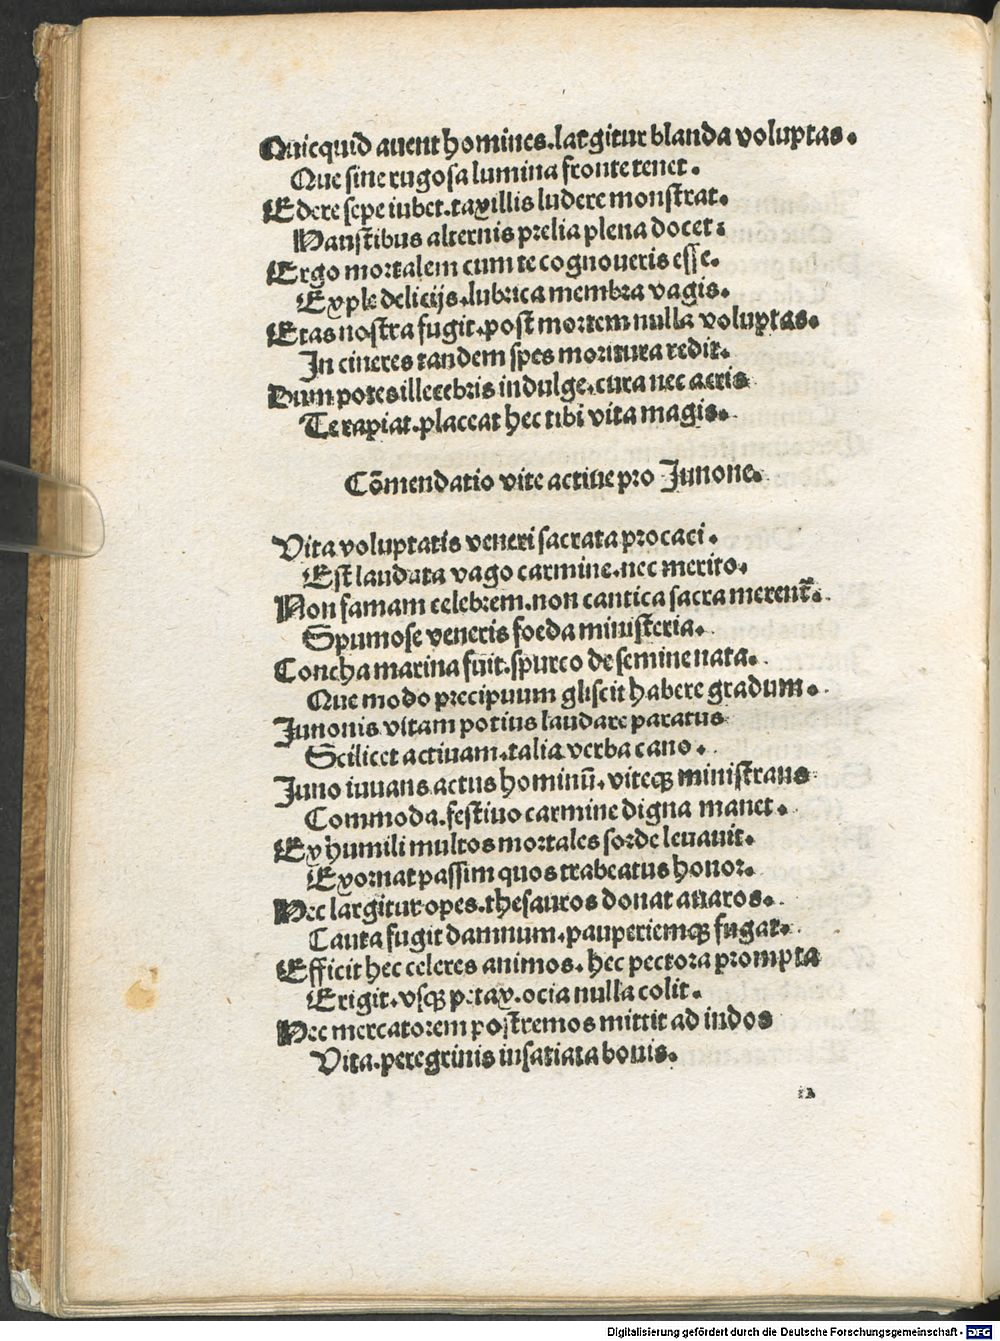 Quicquid auent homines.largitur blanda voluptas.
Que sine rugosa lumina fronte tenet.
Edere sepe iubet.taxillis ludere monstrat.
Haustibus alternis prelia plena docet.
Ergo mortalem cum te cognoueris esse.
Exple delicijs.lubrica membra vagis.
Etas nostra fugit.post mortem nulla voluptas.
In cineres tandem spes moritura redit.
Dum potes illecebris indulge.cura nec acris
Te rapiat.placeat hec tibi vita magis.
Cōmendatio vite actiue pro Junone.
Vita voluptatis veneri sacrata procaci.
Est laudata vago carmine.nec merito.
Non famam celebrem.non cantica sacra merent̃.
Spumose veneris foeda ministeria.
Concha marina fuit.spurco de semine nata.
Que modo precipuum gliscit habere gradum.
Junonis vitam potius laudare paratus
Scilicet actiuam.talia verba cano.
Juno iuuans actus hominū.viteqꝫ ministrans
Commoda.festiuo carmine digna manet.
Ex humili multos mortales sorde leuauit.
Exornat passim quos trabeatus honor.
Hec largitur opes.thesauros donat auaros.
Cauta fugit damnum.pauperiemqꝫ fugat.
Efficit hec celeres animos.hec pectora prompta
Erigit.vsqꝫ ocia nulla colit.
Hec mercatorem postremos mittit ad indos
Vita.peregrinis insatiata bonis.
Digitalisierung gefördert durch die Deutsche Forschungsgemeinschaft - DFG